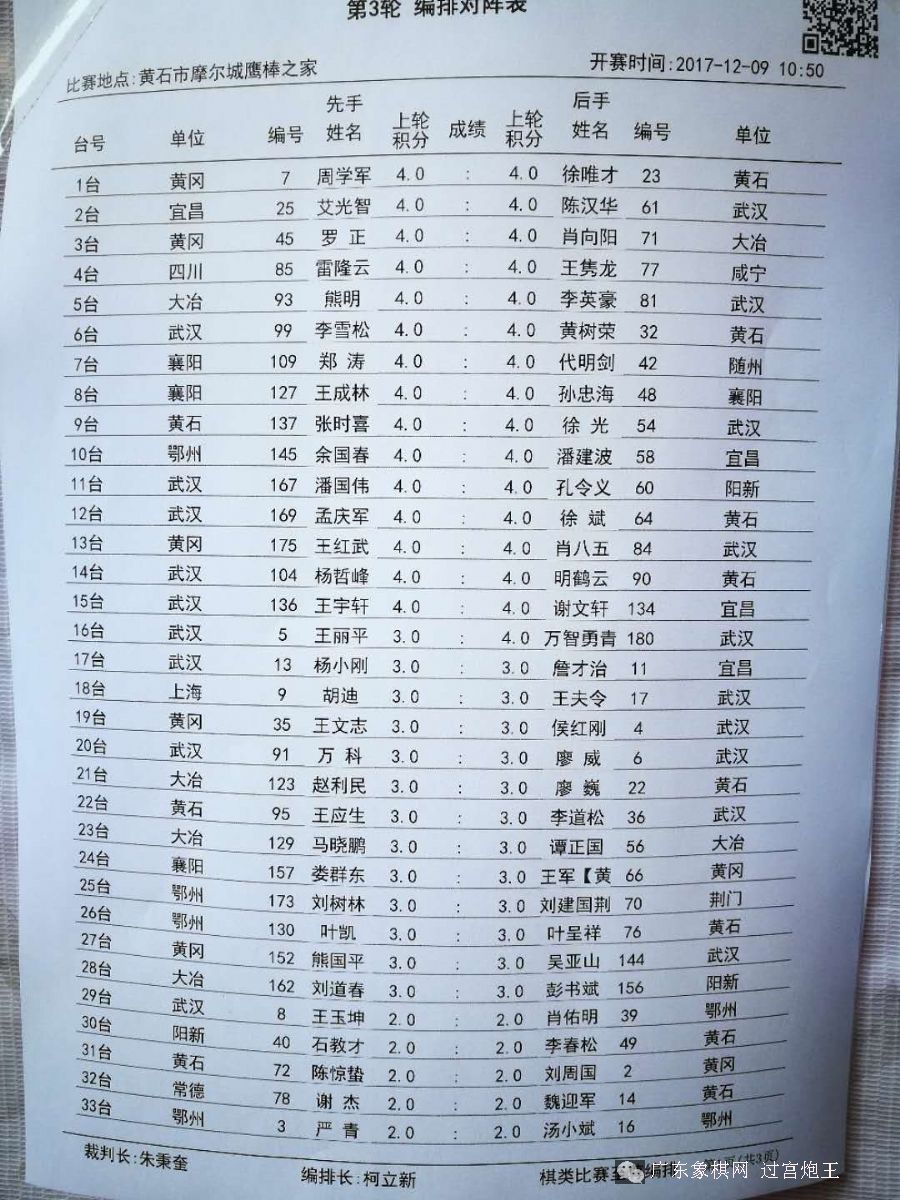 第3轮 编排对阵表
比赛地点:黄石市摩尔城鹰棒之家 开赛时间:2017-12-09 10:50
先手 后手
台号 单位 编号 姓名 上轮积分 成绩 上轮积分 姓名 编号 单位
1台 黄冈 7 周学军 4.0 : 4.0 徐唯才 23 黄石
2台 宜昌 25 艾光智 4.0 : 4.0 陈汉华 61 武汉
3台 黄冈 45 罗 正 4.0 : 4.0 肖向阳 71 大冶
4台 四川 85 雷隆云 4.0 : 4.0 王隽龙 77 咸宁
5台 大冶 93 熊明 4.0 : 4.0 李英豪 81 武汉
6台 武汉 99 李雪松 4.0 : 4.0 黄树荣 32 黄石
7台 襄阳 109 郑 涛 4.0 : 4.0 代明剑 42 随州
8台 襄阳 127 王成林 4.0 : 4.0 孙忠海 48 襄阳
9台 黄石 137 张时喜 4.0 : 4.0 徐 光 54 武汉
10台 鄂州 145 余国春 4.0 : 4.0 潘建波 58 宜昌
11台 武汉 167 潘国伟 4.0 : 4.0 孔令义 60 阳新
12台 武汉 169 孟庆军 4.0 : 4.0 徐 斌 64 黄石
13台 黄冈 175 王红武 4.0 : 4.0 肖八五 84 武汉
14台 武汉 104 杨哲峰 4.0 : 4.0 明鹤云 90 黄石
15台 武汉 136 王宇轩 4.0 : 4.0 谢文轩 134 宜昌
16台 武汉 5 王丽平 3.0 : 4.0 万智勇青 180 武汉
17台 武汉 13 杨小刚 3.0 : 3.0 詹才治 11 宜昌
18台 上海 9 胡迪 3.0 : 3.0 王夫令 17 武汉
19台 黄冈 35 王文志 3.0 : 3.0 侯红刚 4 武汉
20台 武汉 91 万 科 3.0 : 3.0 廖 威 6 武汉
21台 大冶 123 赵利民 3.0 : 3.0 廖 巍 22 黄石
22台 黄石 95 王应生 3.0 : 3.0 李道松 36 武汉
23台 大冶 129 马晓鹏 3.0 : 3.0 谭正国 56 大冶
24台 襄阳 157 娄群东 3.0 : 3.0 王军【黄 66 黄冈
25台 鄂州 173 刘树林 3.0 : 3.0 刘建国荆 70 荆门
26台 鄂州 130 叶凯 3.0 : 3.0 叶呈祥 76 黄石
27台 黄冈 152 熊国平 3.0 : 3.0 吴亚山 144 武汉
28台 大冶 162 刘道春 3.0 : 3.0 彭书斌 156 阳新
29台 武汉 8 王玉坤 2.0 : 2.0 肖佑明 39 鄂州
30台 阳新 40 石教才 2.0 : 2.0 李春松 49 黄石
31台 黄石 72 陈惊蛰 2.0 : 2.0 刘周国 2 黄冈
32台 常德 78 谢 杰 2.0 : 2.0 魏迎军 14 黄石
33台 鄂州 3 严 青 2.0 : 2.0 汤小斌 16 鄂州
裁判长:朱秉奎 编排长:柯立新 棋类比赛 编排 页(共3页)
广东象棋网 过宫炮王